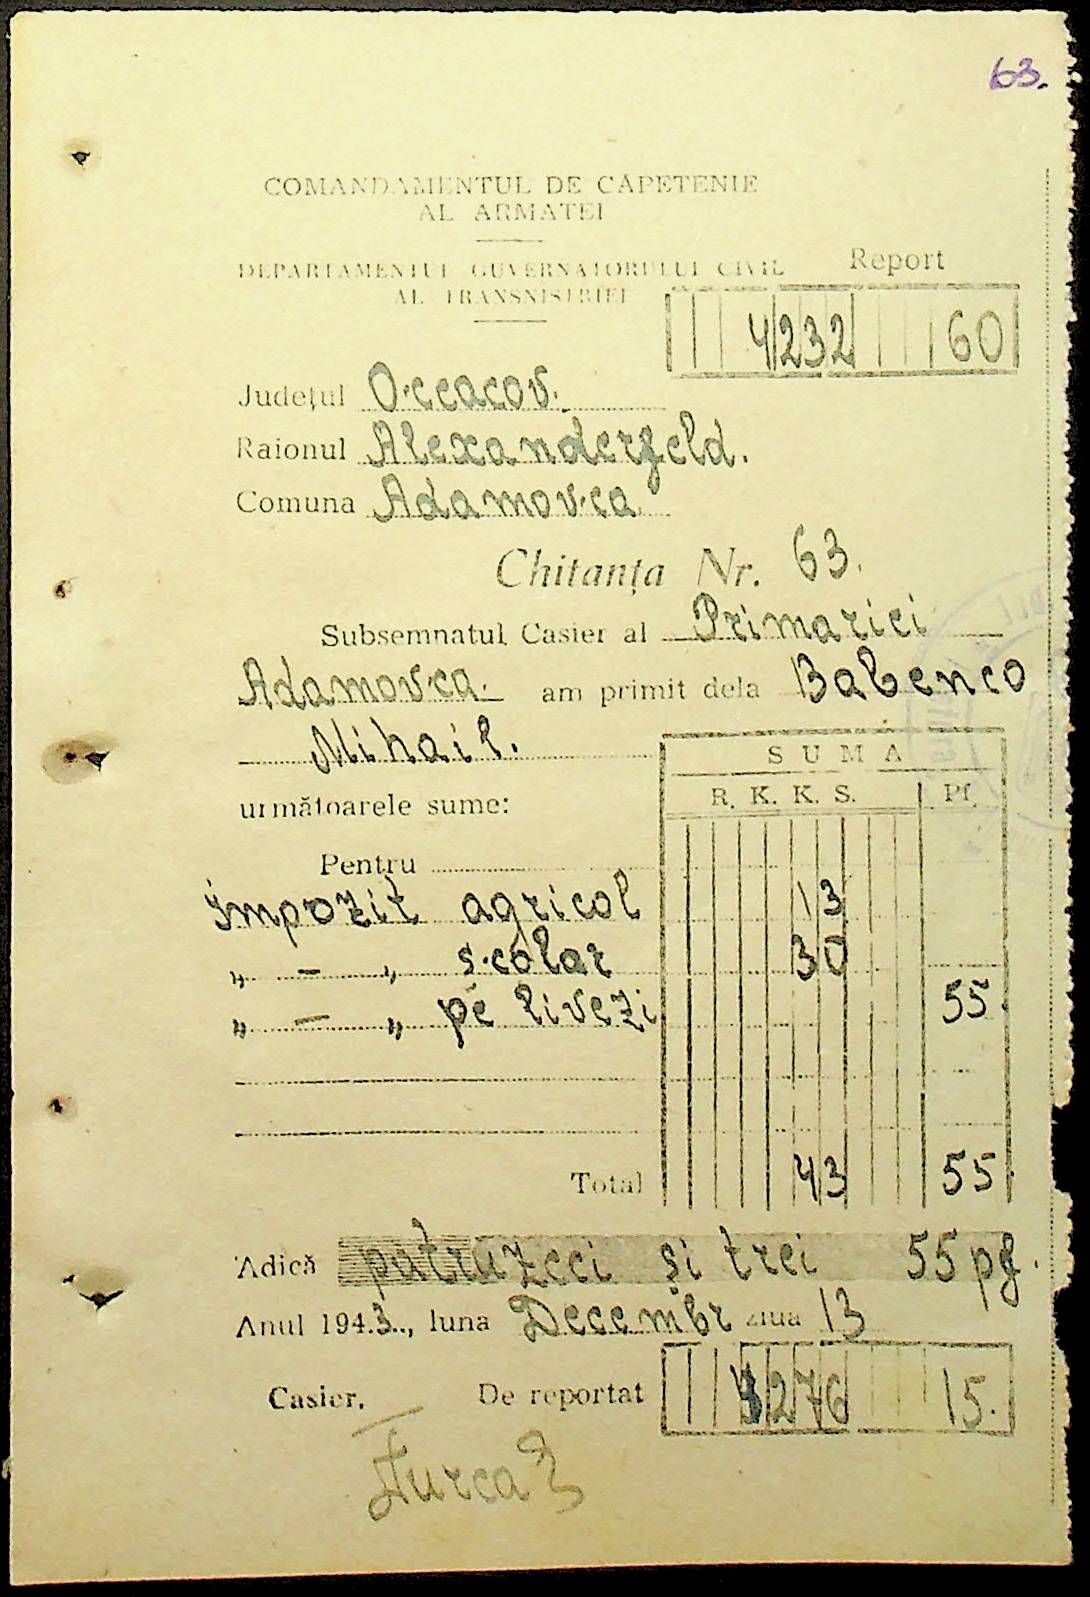 63.
COMANDAMENTUL DE CĂPETENIE
AL ARMATEI
DEPARTAMENTUL GUVERNATORULUI CIVIL
AL TRANSNISTRIEI
Report
4232 60
Județul Occacov.
Raionul Alexanderfeld.
Comuna Adamovca
Chitanța Nr. 63.
Subsemnatul Casier al Primariei
Adamovca. am primit dela Babenco
Mihail.
SUMA
R. K. K. S. Pf.
următoarele sume:
Pentru
impozit agricol 13
„ — „ școlar 30
„ — „ pe livezi 55.
Total 43 55.
Adică patruzeci și trei 55 pf.
Anul 1943., luna Decembr ziua 13
Casier. De reportat 4276 15.